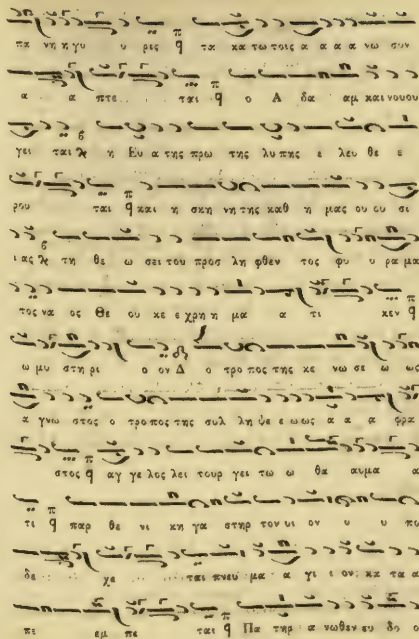 πα νη η γυ υ ρις q τα κα τω τοις α α α α νω συν
α α πτε ται q ο Α δα αμ και νουου
γει ται η Ευ α της πρω της λυ πης ε λευ θε ε
ρου ται q και η σκη νη της καθ η μας ου ου σι
ι ας τη θε ω σει του προσ λη φθεν τος φυ υ ρα μα
τος να ος Θε ου κε ε χρη η μα α τι κεν q
ω μυ στη ρι ο ον ο τρο πος της κε νω σε ω ως
α γνω στος ο τρο πος της συλ λη ψε ε ω ως α α α φρα
στος q αγ γε λος λει τουρ γει τω ω θα αυμα α
τι q παρ θε νι κη γα στηρ τον υι ον υ υ πο
δε χε ται πνευ μα α γι ι ον κα τα α
πε εμ πε ται q Πα τηρ α νωθεν ευ δο ο